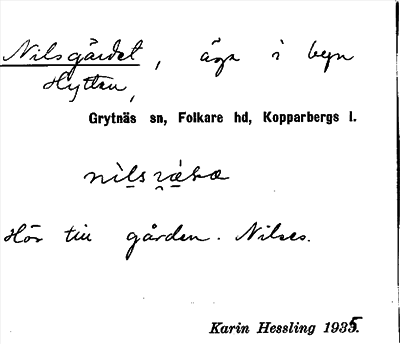 Nilsgärdet, äga i byn
Hyttan,
Grytnäs sn, Folkare hd, Kopparbergs l.
Hör till gården. Nilses.
Karin Hessling 1935.